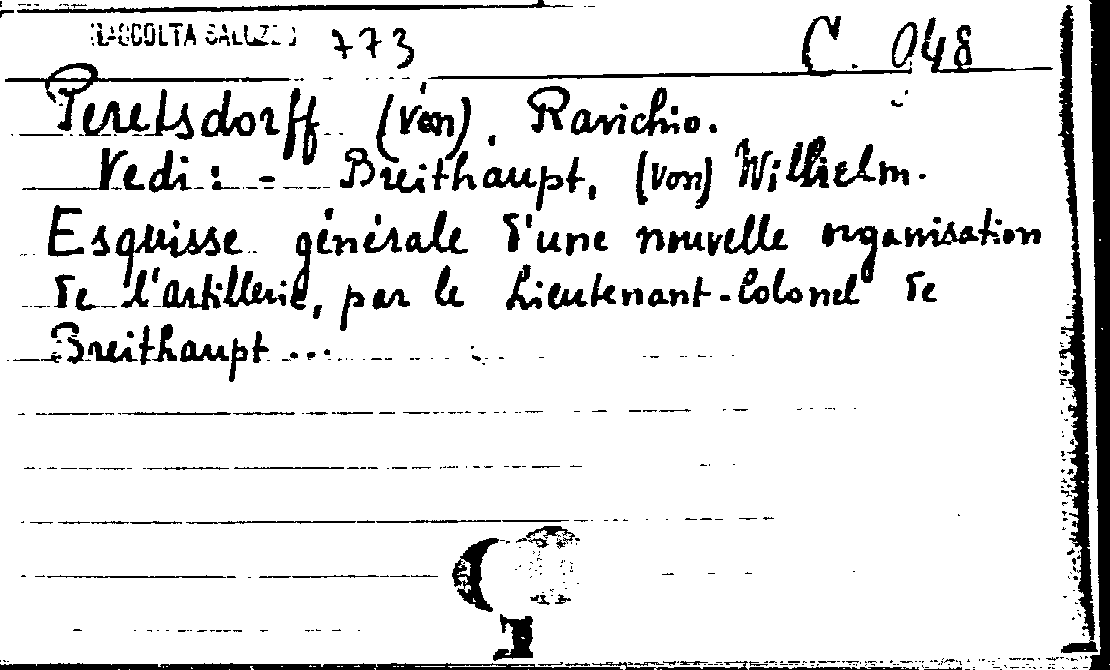 RACCOLTA SALUZZO 773 C. 048
Peretsdorff (von). Ravichio.
Vedi: - Breithaupt, (von) Wilhelm.
Esquisse générale d'une nouvelle organisation
de l'artillerie, par le Lieutenant-Colonel de
Breithaupt ...